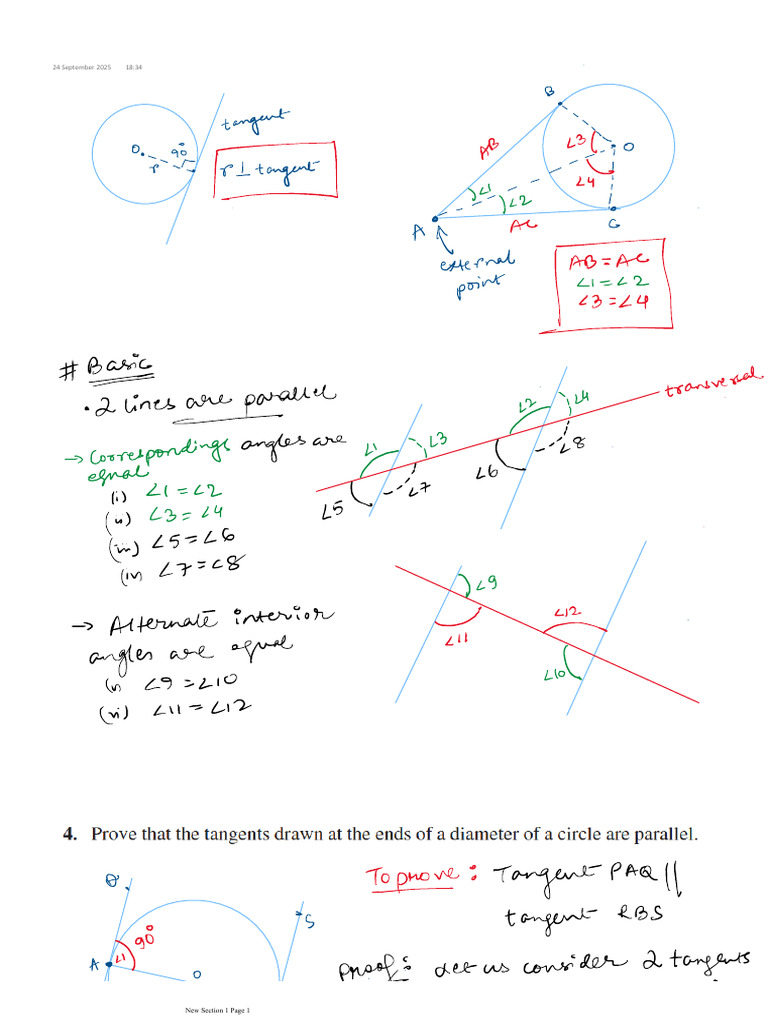 24 September 2025 18:34
tangent
O
90°
r
r ⊥ tangent
B
AB
∠3
O
∠4
∠1
∠2
A
AC
C
external
point
AB = AC
∠1 = ∠2
∠3 = ∠4
# Basic
• 2 lines are parallel
→ Correspondings angles are
equal
(i) ∠1 = ∠2
(ii) ∠3 = ∠4
(iii) ∠5 = ∠6
(iv) ∠7 = ∠8
transversal
∠2
∠4
∠1
∠3
∠8
∠6
∠7
∠5
→ Alternate interior
angles are equal
(v) ∠9 = ∠10
(vi) ∠11 = ∠12
∠9
∠12
∠11
∠10
4. Prove that the tangents drawn at the ends of a diameter of a circle are parallel.
To prove : Tangent PAQ ||
tangent RBS
Proof : Let us consider 2 tangents
Q
S
90°
A
∠1
O
New Section 1 Page 1